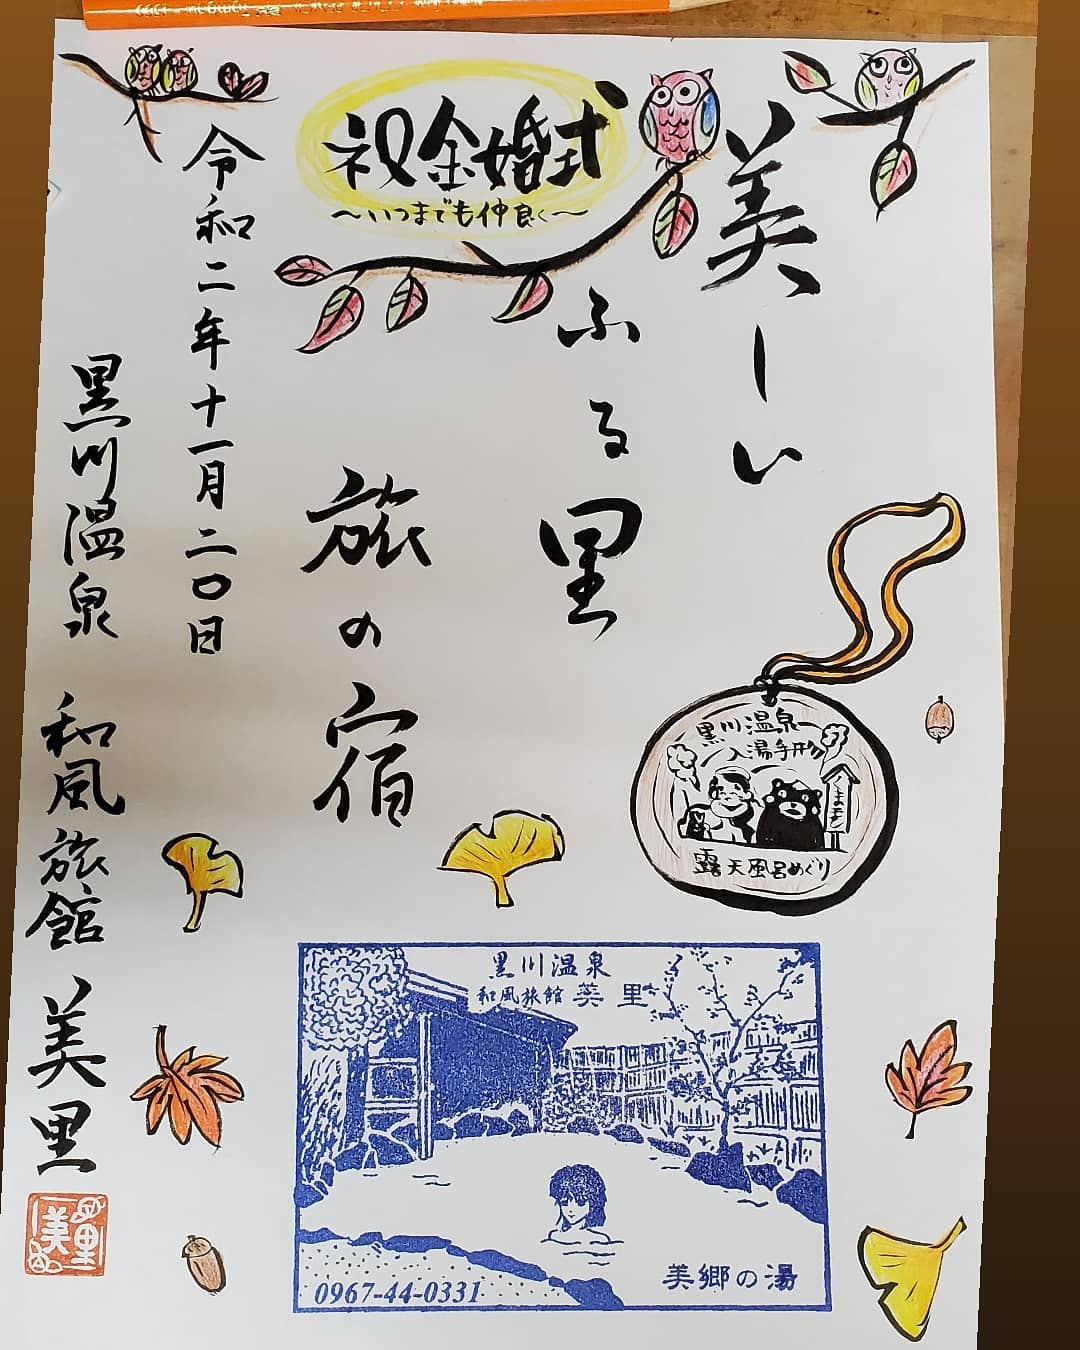 美しい
ふる里
旅の宿
祝金婚式
〜いつまでも仲良く〜
令和二年十一月二〇日
黒川温泉 和風旅館 美里
黒川温泉
入湯手形
くまモン
露天風呂めぐり
黒川温泉
和風旅館 美里
美郷の湯
0967-44-0331